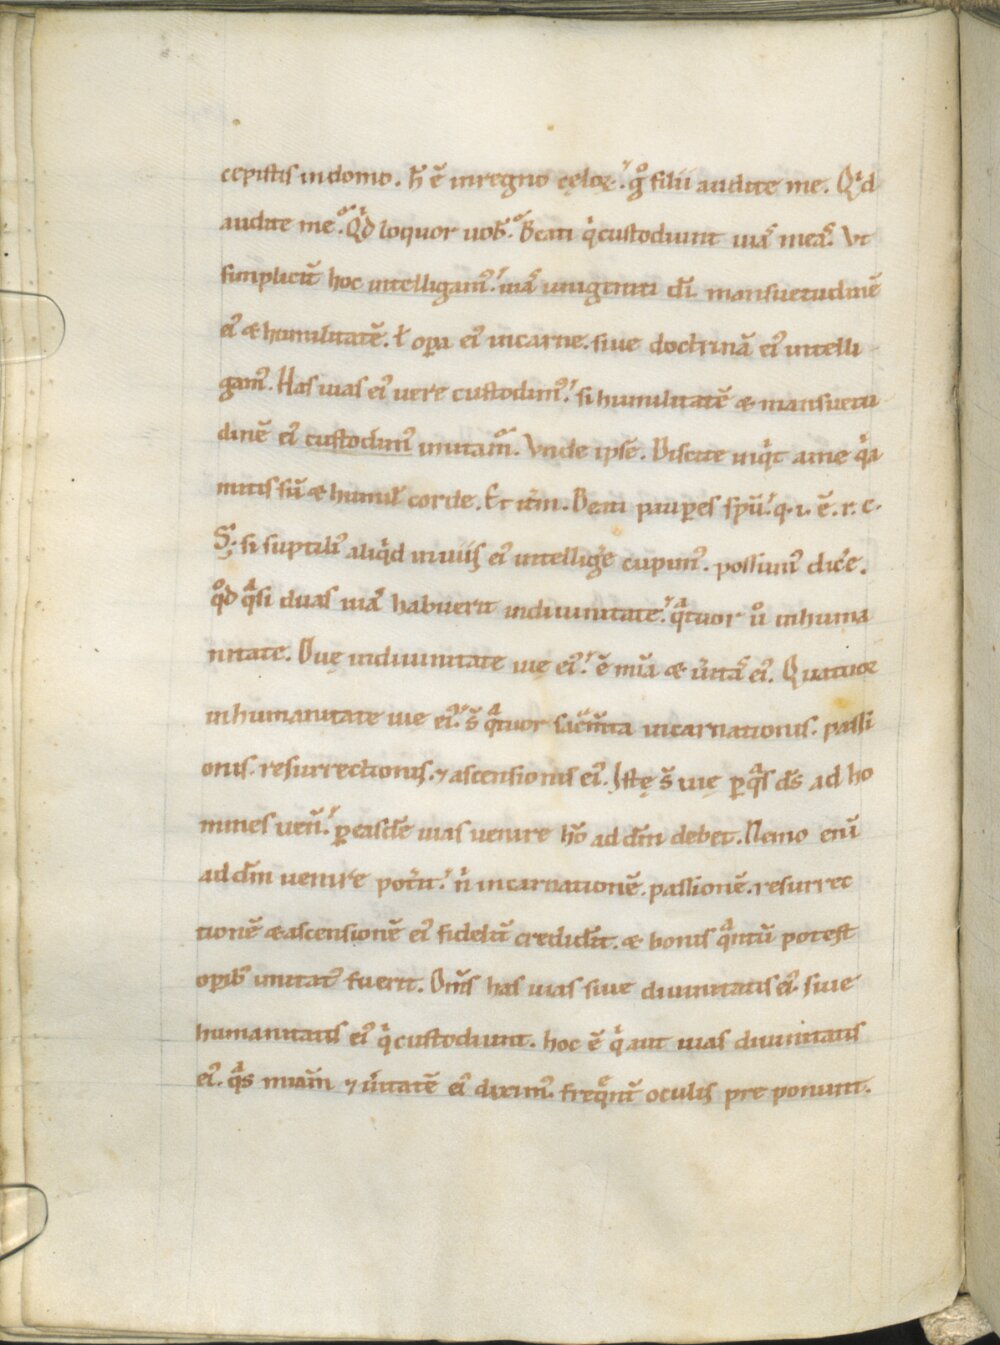 cepistis in domo. h̅ e̅ in regno cęloꝝ. gͦ filii audite me. Qͥd
audite me. Qͥd loquor uob̅. Beati qͥ custodiunt uiaˢ meaˢ. Vt
simpliciꝰ hoc intelligamꝰ. uiaˢ unigeniti di̅. mansuetudine̅
eiꝰ & humilitate̅. ł oꝑa eiꝰ in carne. siue doctrina̅ eiꝰ intelli
gamꝰ. Has uias eiꝰ uere custodimꝰ. si humilitate̅ & mansuetu
dine̅ eiꝰ custodimꝰ imitam̅. Vnde ipse̅. Discite inqͥt a me qͥa
mitis su̅ & humił corde. Et it̅m. Beati pauꝑes spu̅. q. i. e̅. r. c.
S; si suptiliꝰ aliqͥd in uiis eiꝰ intellig̅e cupimꝰ. possumꝰ dic̅e.
qͦd qᵃsi duas uiaˢ habuerit in diuinitate. qᵃtuor uͦ in huma
nitate. Duę in diuinitate uię eiꝰ. e̅ mi̅a & u̅itaˢ eiꝰ. Quatuor
in humanitate uie eiꝰ. s̅ qᵃtuor sac̅m̅ta incarnationis. passi
onis. resurrectionis. ⁊ ascensionis eiꝰ. Istę s̅ uię ꝑ qᵃs ds̅ ad ho
mines uen̅. ꝑ easde̅ uias uenire ho̅ ad dm̅ debet. Nemo eni̅
ad dm̅ uenire pot̅it. nͥ incarnatione̅. passione̅. resurrec
tione̅ & ascensione̅ eiꝰ fideliꝰ credid̅it. & bonis qᵃntu̅ potest
oꝑibꝰ imitatꝰ fuerit. Om̅s has uias siue diuinitatis eiꝰ. siue
humanitatis eiꝰ qͥ custodiunt. hoc e̅ qͥ aut uias diuinitatis
eiꝰ. qᵃs mi̅am ⁊ u̅itate̅ eiꝰ diximꝰ. freq̅ntꝰ oculis pre ponunt.